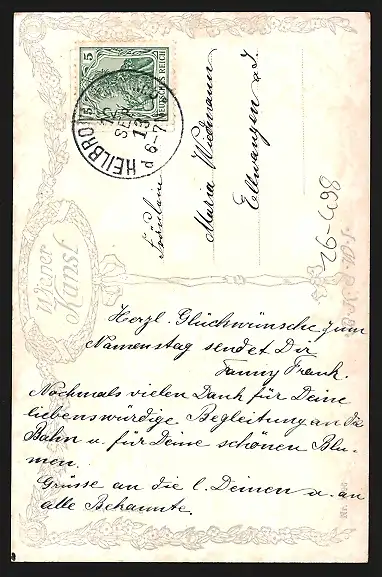 Wiener
Kunst
5 5
DEUTSCHES REICH
HEILBRO
SEP
13
6-7
Fräulein
Maria Wiedmann
Ellwangen a. J.
Herzl. Glückwünsche zum
Namenstag sendet Dir
Fanny Frank.
Nochmals vielen Dank für Deine
liebenswürdige Begleitung an die
Bahn u. für Deine schönen Blu-
men.
Grüsse an die l. Deinen u. an
alle Bekannte.